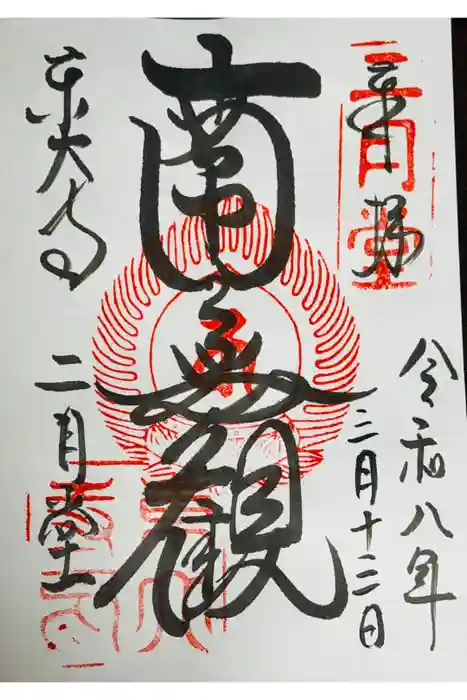 令和八年
三月十二日
奉拝
二月堂
南無観
東大寺
二月堂